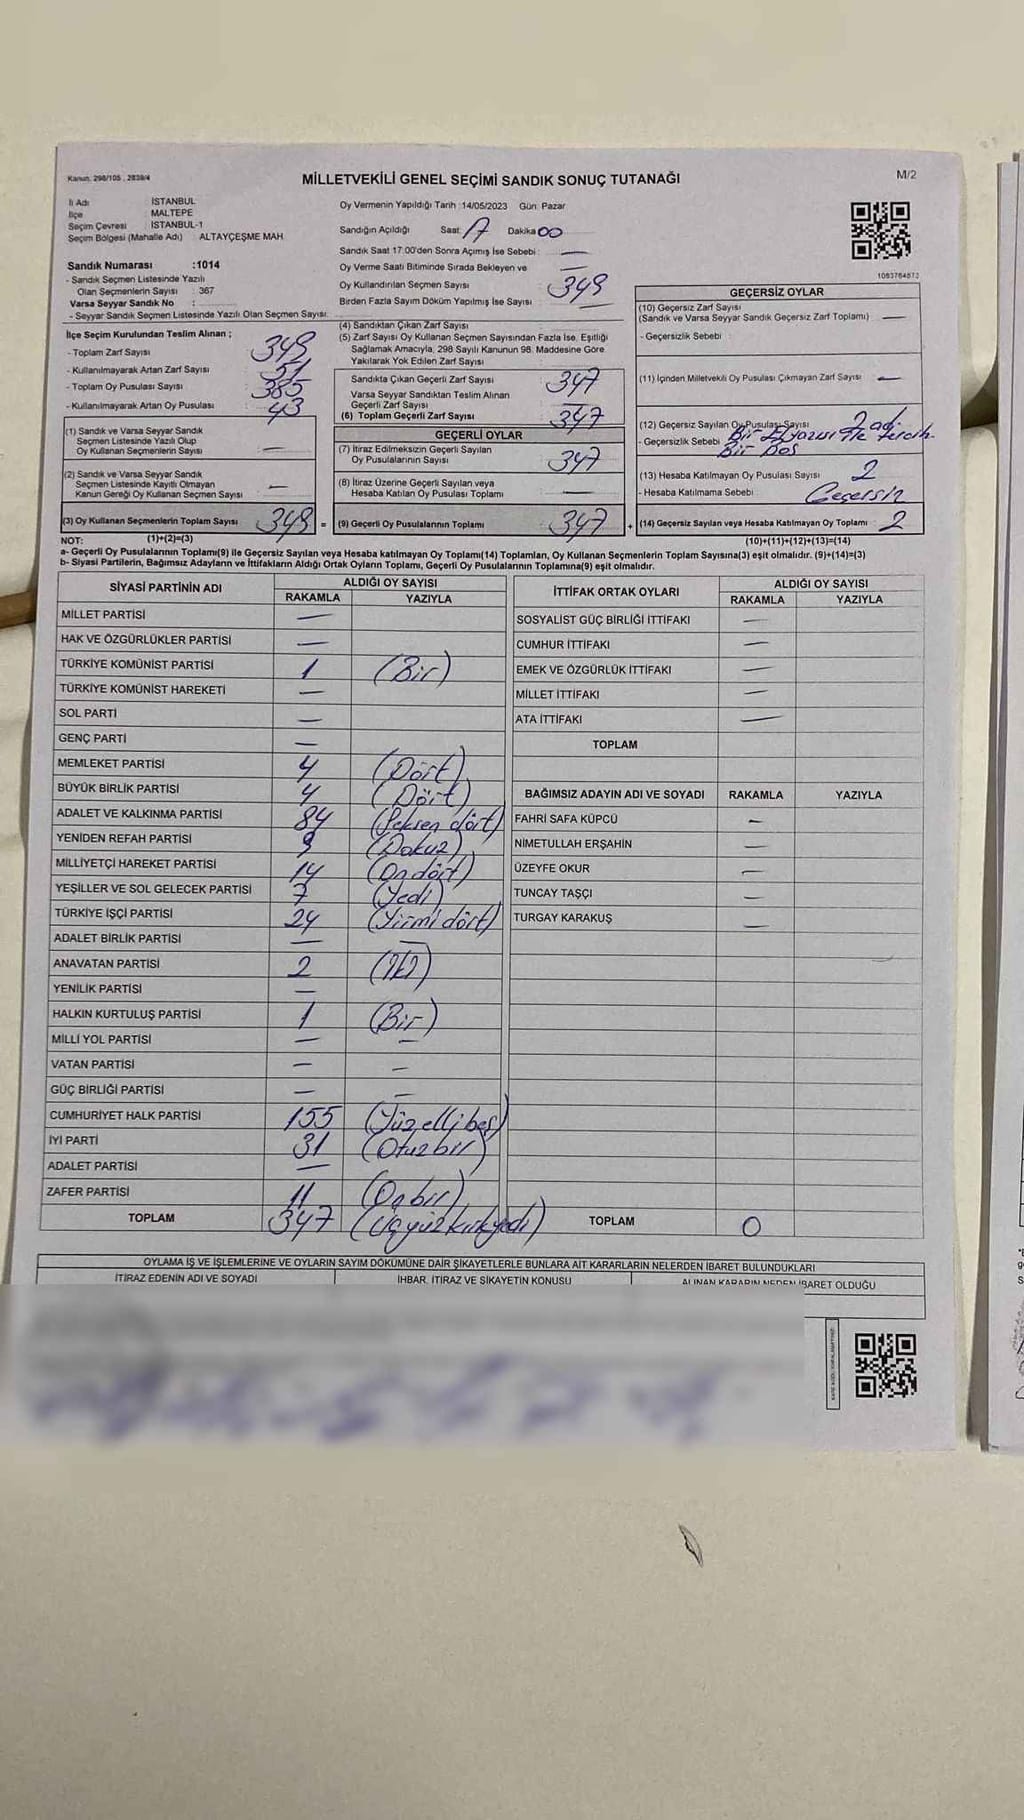 Kanun: 298/105 , 2839/4
MİLLETVEKİLİ GENEL SEÇİMİ SANDIK SONUÇ TUTANAĞI
M/2
İl Adı : İSTANBUL
İlçe : MALTEPE
Seçim Çevresi : İSTANBUL-1
Seçim Bölgesi (Mahalle Adı) ALTAYÇEŞME MAH.
Sandık Numarası :1014
- Sandık Seçmen Listesinde Yazılı
Olan Seçmenlerin Sayısı : 367
Varsa Seyyar Sandık No :
- Seyyar Sandık Seçmen Listesinde Yazılı Olan Seçmen Sayısı:
Oy Vermenin Yapıldığı Tarih :14/05/2023 Gün: Pazar
Sandığın Açıldığı Saat: 17 Dakika: 00
Sandık Saat 17:00'den Sonra Açımış İse Sebebi : —
Oy Verme Saati Bitiminde Sırada Bekleyen ve —
Oy Kullandırılan Seçmen Sayısı : 349
Birden Fazla Sayım Döküm Yapılmış İse Sayısı :
1083764873
İlçe Seçim Kurulundan Teslim Alınan ;
- Toplam Zarf Sayısı :
- Kullanılmayarak Artan Zarf Sayısı : 51
- Toplam Oy Pusulası Sayısı : 385
- Kullanılmayarak Artan Oy Pusulası : 43
(1) Sandık ve Varsa Seyyar Sandık
Seçmen Listesinde Yazılı Olup
Oy Kullanan Seçmenlerin Sayısı : —
(2) Sandık ve Varsa Seyyar Sandık
Seçmen Listesinde Kayıtlı Olmayan
Kanun Gereği Oy Kullanan Seçmen Sayısı : —
(3) Oy Kullanan Seçmenlerin Toplam Sayısı : 349 =
(4) Sandıktan Çıkan Zarf Sayısı :
(5) Zarf Sayısı Oy Kullanan Seçmen Sayısından Fazla İse, Eşitliği
Sağlamak Amacıyla, 298 Sayılı Kanunun 98. Maddesine Göre
Yakılarak Yok Edilen Zarf Sayısı :
Sandıkta Çıkan Geçerli Zarf Sayısı : 347
Varsa Seyyar Sandıktan Teslim Alınan
Geçerli Zarf Sayısı : —
(6) Toplam Geçerli Zarf Sayısı : 347
GEÇERLİ OYLAR
(7) İtiraz Edilmeksizin Geçerli Sayılan
Oy Pusulalarının Sayısı : 347
(8) İtiraz Üzerine Geçerli Sayılan veya
Hesaba Katılan Oy Pusulası Toplamı : —
(9) Geçerli Oy Pusulalarının Toplamı : 347 +
GEÇERSİZ OYLAR
(10) Geçersiz Zarf Sayısı
(Sandık ve Varsa Seyyar Sandık Geçersiz Zarf Toplamı) : —
- Geçersizlik Sebebi :
(11) İçinden Milletvekili Oy Pusulası Çıkmayan Zarf Sayısı : —
(12) Geçersiz Sayılan Oy Pusulası Sayısı : 2 adt
- Geçersizlik Sebebi : Bir El yazısı ile tercih
Bir Boş
(13) Hesaba Katılmayan Oy Pusulası Sayısı : 2
- Hesaba Katılmama Sebebi : Geçersiz
(14) Geçersiz Sayılan veya Hesaba Katılmayan Oy Toplamı : 2
NOT: (1)+(2)=(3)
(10)+(11)+(12)+(13)=(14)
a- Geçerli Oy Pusulalarının Toplamı(9) ile Geçersiz Sayılan veya Hesaba katılmayan Oy Toplamı(14) Toplamları, Oy Kullanan Seçmenlerin Toplam Sayısına(3) eşit olmalıdır. (9)+(14)=(3)
b- Siyasi Partilerin, Bağımsız Adayların ve İttifakların Aldığı Ortak Oyların Toplamı, Geçerli Oy Pusulalarının Toplamına(9) eşit olmalıdır.
SİYASİ PARTİNİN ADI
ALDIĞI OY SAYISI
RAKAMLA YAZIYLA
MİLLET PARTİSİ —
HAK VE ÖZGÜRLÜKLER PARTİSİ —
TÜRKİYE KOMÜNİST PARTİSİ 1 (Bir)
TÜRKİYE KOMÜNİST HAREKETİ —
SOL PARTİ —
GENÇ PARTİ —
MEMLEKET PARTİSİ 4 (Dört)
BÜYÜK BİRLİK PARTİSİ 4 (Dört)
ADALET VE KALKINMA PARTİSİ 84 (Seksen dört)
YENİDEN REFAH PARTİSİ 9 (Dokuz)
MİLLİYETÇİ HAREKET PARTİSİ 14 (On dört)
YEŞİLLER VE SOL GELECEK PARTİSİ 7 (Yedi)
TÜRKİYE İŞÇİ PARTİSİ 24 (Yirmi dört)
ADALET BİRLİK PARTİSİ — —
ANAVATAN PARTİSİ 2 (İki)
YENİLİK PARTİSİ —
HALKIN KURTULUŞ PARTİSİ 1 (Bir)
MİLLİ YOL PARTİSİ — —
VATAN PARTİSİ — —
GÜÇ BİRLİĞİ PARTİSİ — —
CUMHURİYET HALK PARTİSİ 155 (Yüz elli beş)
İYİ PARTİ 31 (Otuz bir)
ADALET PARTİSİ —
ZAFER PARTİSİ 11 (On bir)
TOPLAM 347 (Üç yüz kırk yedi)
İTTİFAK ORTAK OYLARI
ALDIĞI OY SAYISI
RAKAMLA YAZIYLA
SOSYALİST GÜÇ BİRLİĞİ İTTİFAKI —
CUMHUR İTTİFAKI —
EMEK VE ÖZGÜRLÜK İTTİFAKI —
MİLLET İTTİFAKI —
ATA İTTİFAKI —
TOPLAM
BAĞIMSIZ ADAYIN ADI VE SOYADI RAKAMLA YAZIYLA
FAHRİ SAFA KÜPCÜ —
NİMETULLAH ERŞAHİN —
ÜZEYFE OKUR —
TUNCAY TAŞÇI —
TURGAY KARAKUŞ —
TOPLAM 0
OYLAMA İŞ VE İŞLEMLERİNE VE OYLARIN SAYIM DÖKÜMÜNE DAİR ŞİKAYETLERLE BUNLARA AİT KARARLARIN NELERDEN İBARET BULUNDUKLARI
İTİRAZ EDENİN ADI VE SOYADI İHBAR, İTİRAZ VE ŞİKAYETİN KONUSU ALINAN KARARIN NEDEN İBARET OLDUĞU